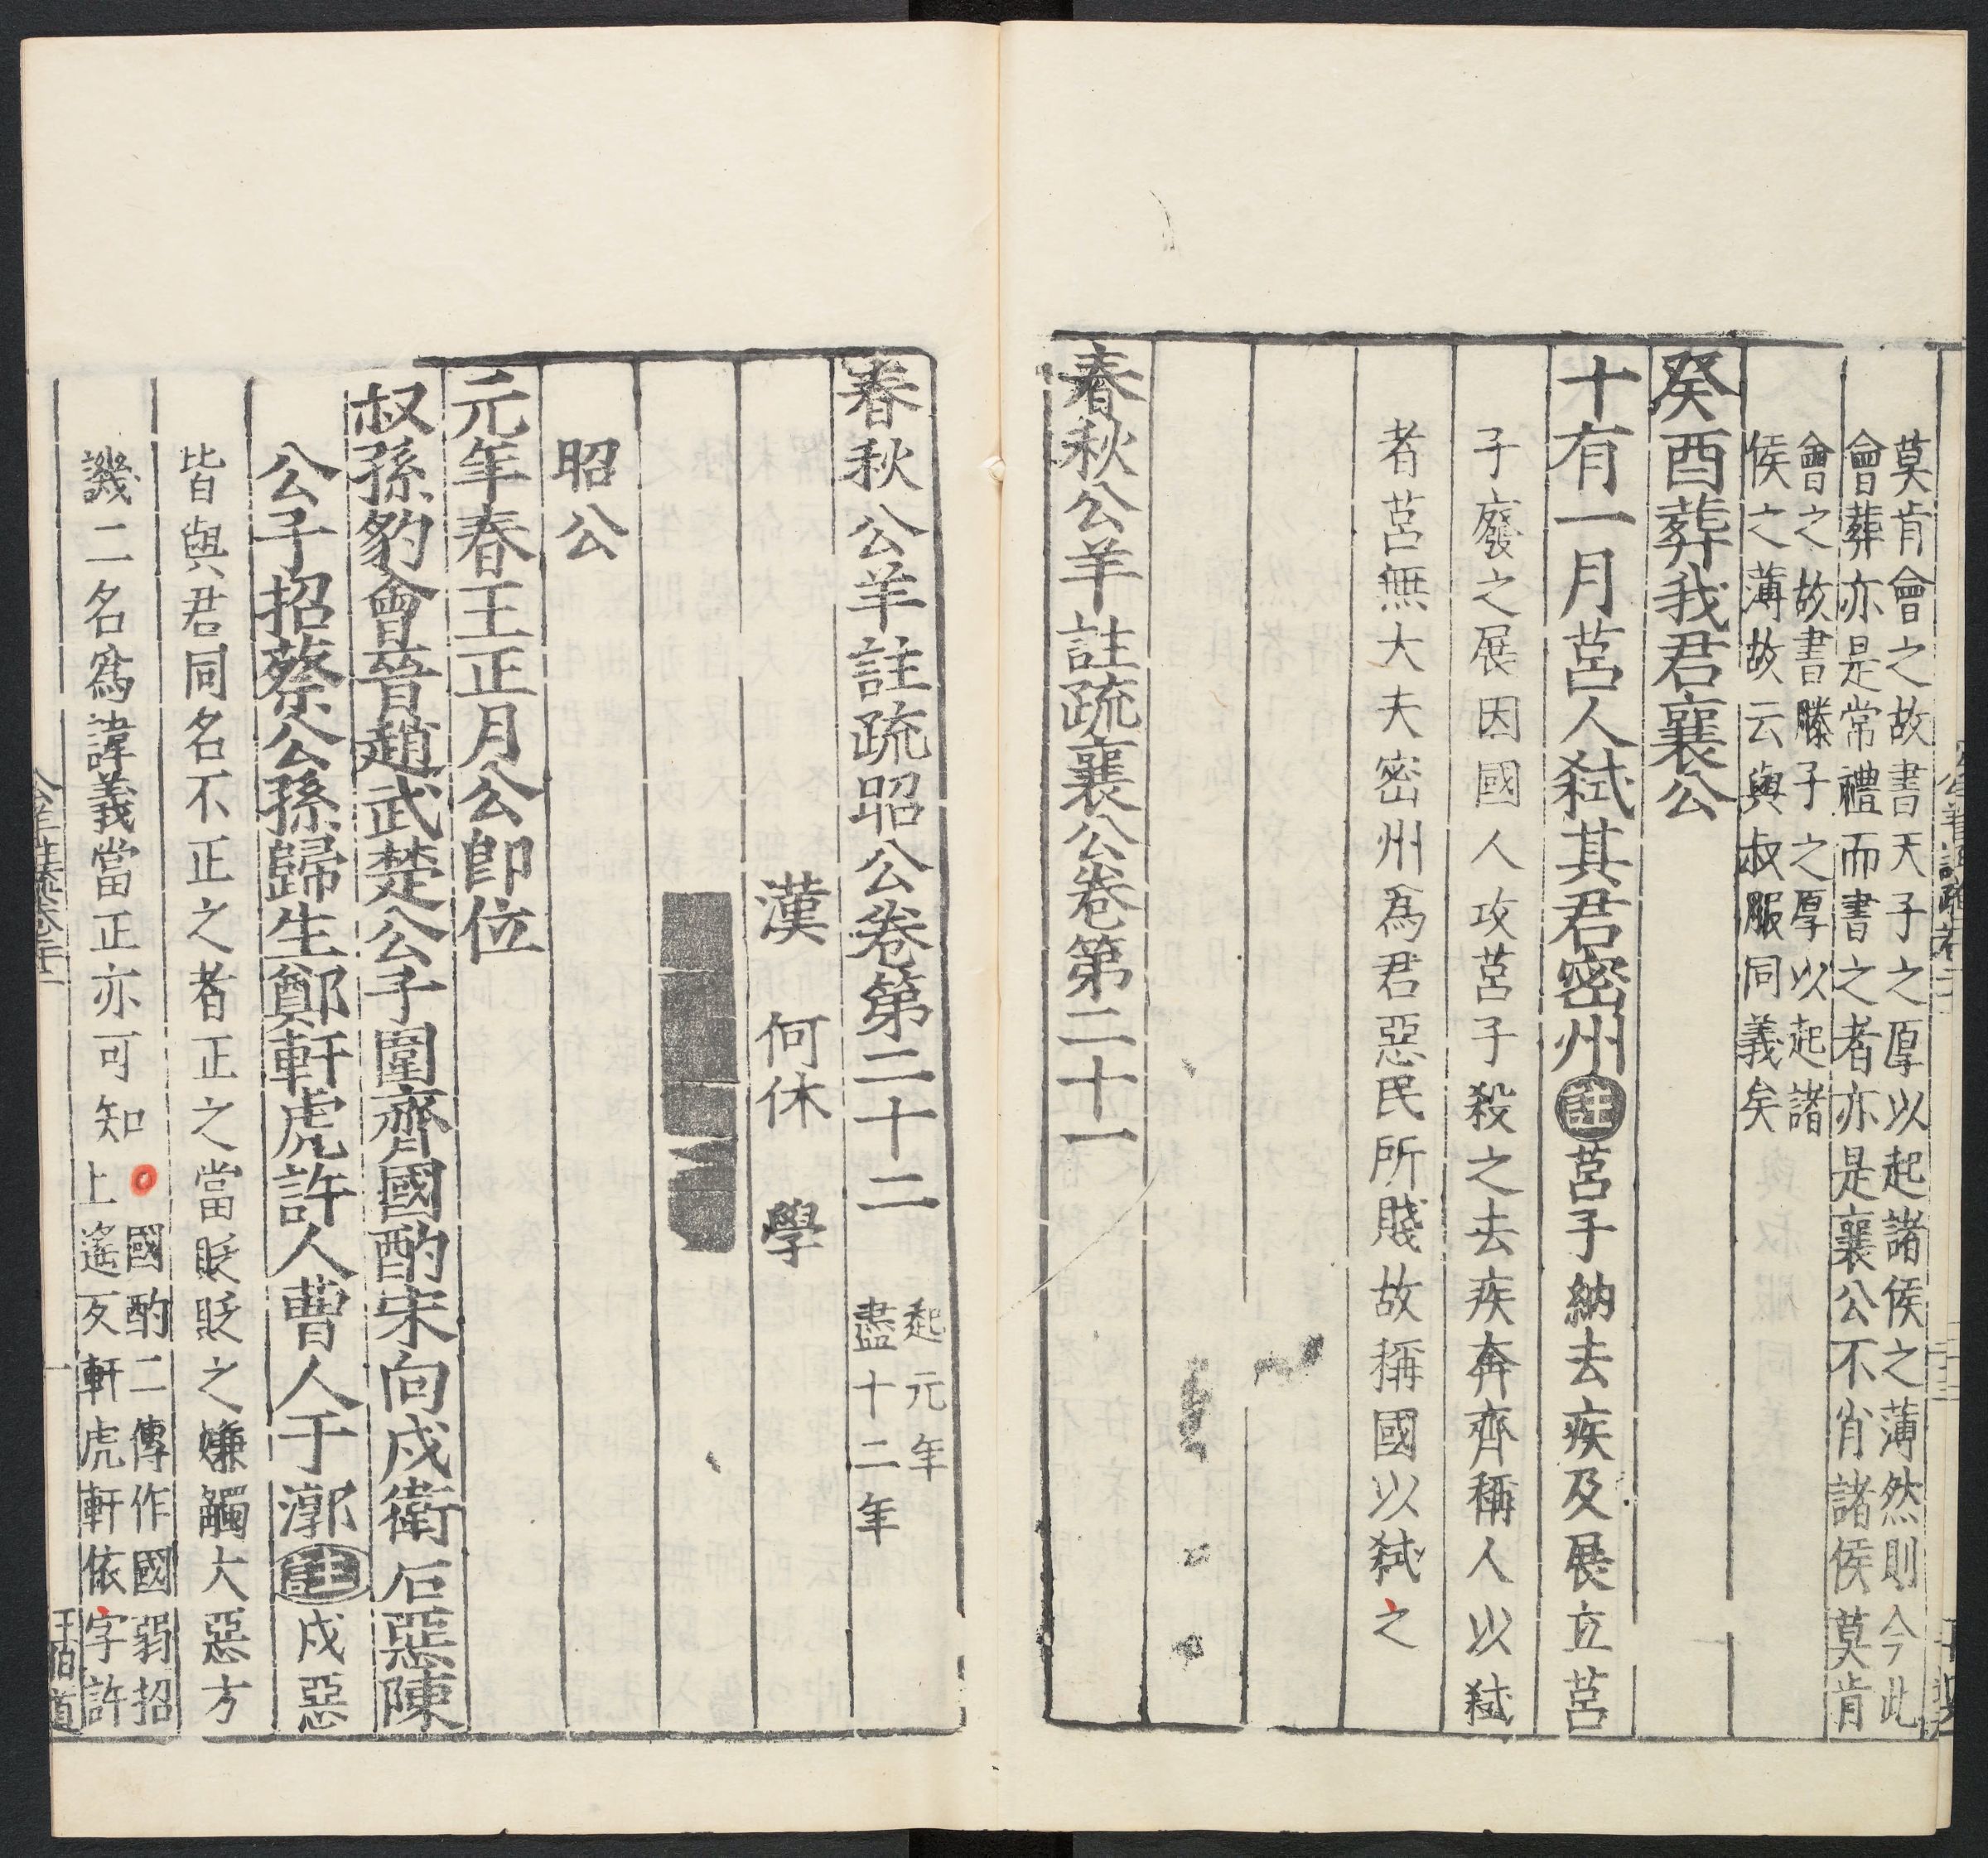 莫肯會之故書天子之厚以起諸侯之薄然則今此
會葬亦是常禮而書之者亦是襄公不肖諸侯莫肯
會之故書滕子之厚以起諸
侯之薄故云與叔服同義矣
癸酉葬我君襄公
十有一月莒人弑其君密州註莒子納去疾及展立莒
子廢之展因國人攻莒子殺之去疾奔齊稱人以弑
者莒無大夫密州爲君惡民所賤故稱國以弑之
春秋公羊註疏襄公卷第二十一
春秋公羊註疏昭公卷第二十二
起元年
盡十二年
漢 何休 學
昭公
元年春王正月公卽位
叔孫豹會晉趙武楚公子圍齊國酌宋向戌衛石惡陳
公子招蔡公孫歸生鄭軒虎許人曹人于漷註戌惡
皆與君同名不正之者正之當貶貶之嫌觸大惡方
譏二名爲諱義當正亦可知
國酌二傳作國弱招
上遙反軒虎軒依字許